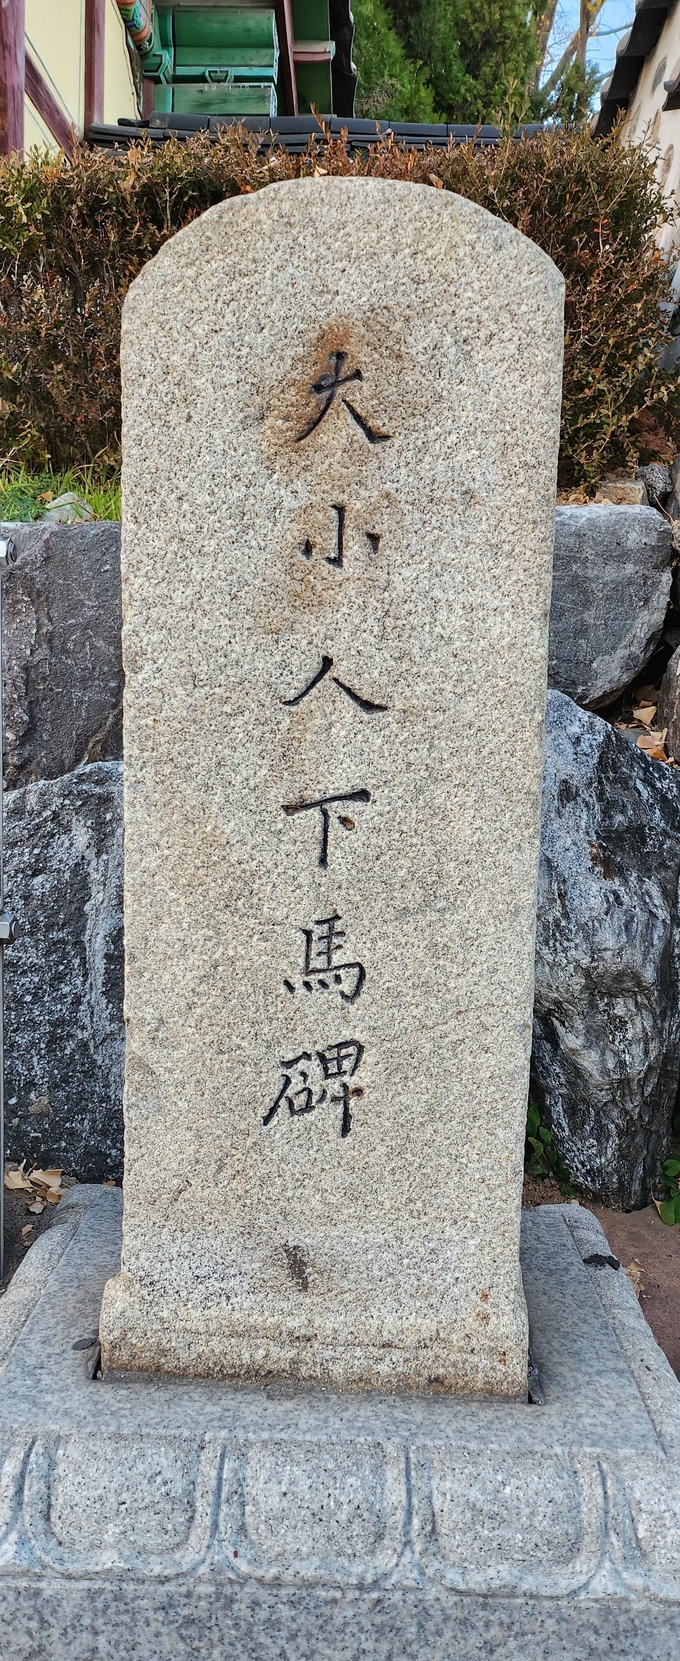 大小人下馬碑